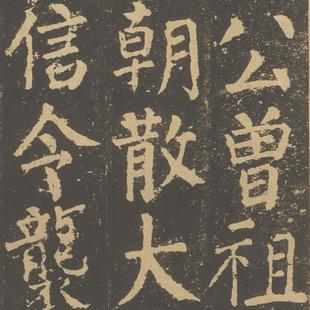 公曾祖
朝散大
信令龔